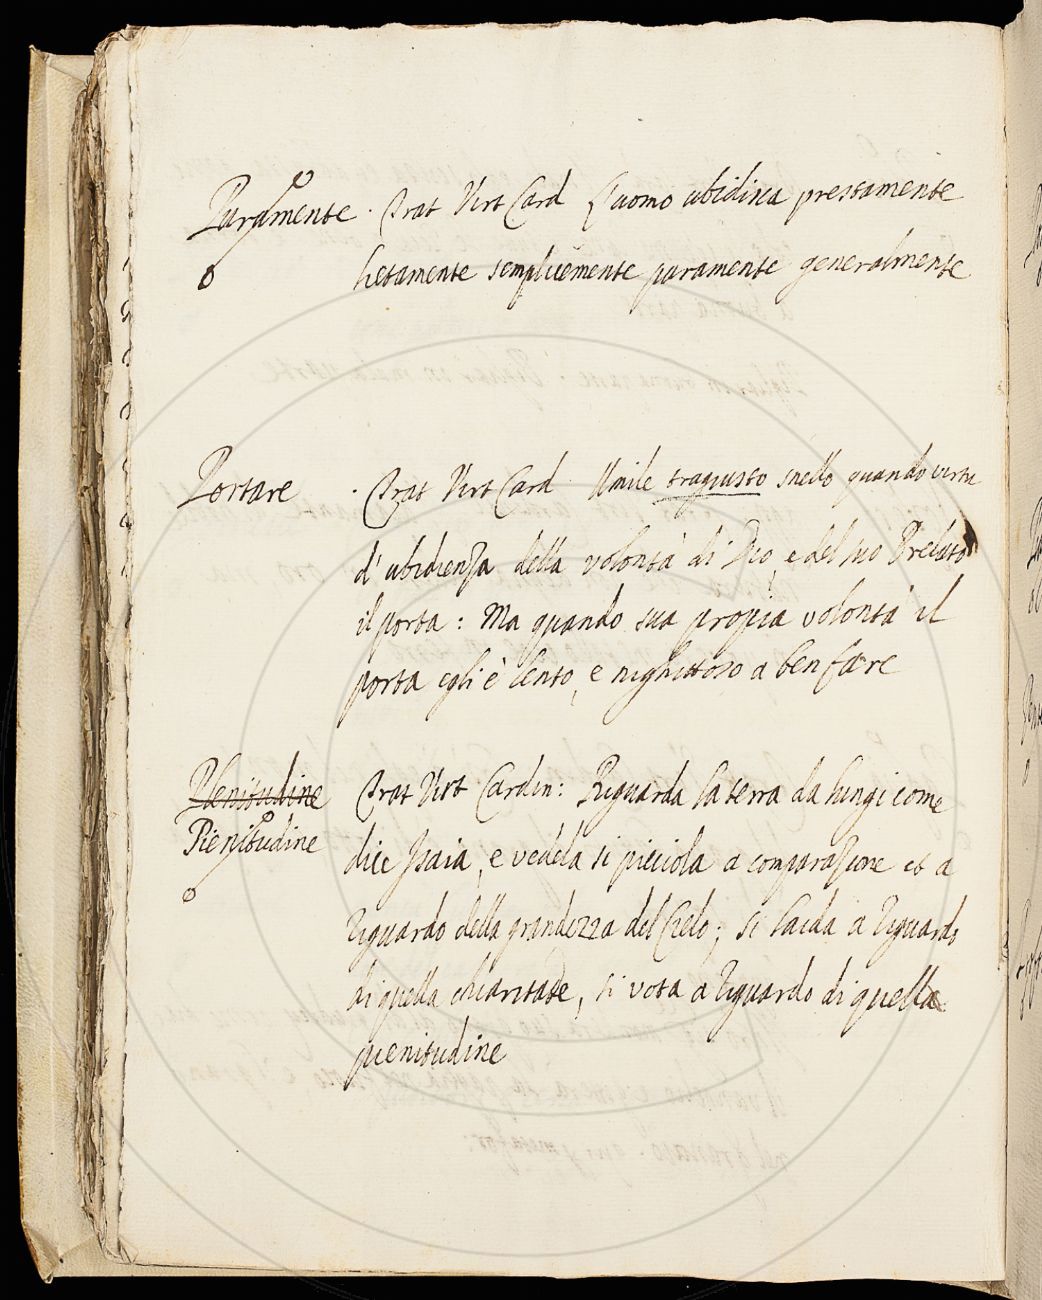 Puramente. Trat Virt Card L'uomo ubidisca prestamente
o lietamente semplicemente puramente generalmente
Portare. Trat Virt Card Umile tragiusto snello quando virtu
d'ubidienza della volontà di Dio, e del suo Prelato
il porta: Ma quando sua propia volontà il
porta egli è lento, e nighittoso a ben fare
Plenitudine Trat Virt Cardin: Riguarda la terra da lungi come
Pienitudine dice Isaia, e vedela si picciola a comparazione et a
o riguardo della grandezza del Cielo; si laida a riguardo
di quella chiaritade, si vota a riguardo di quella
pienitudine